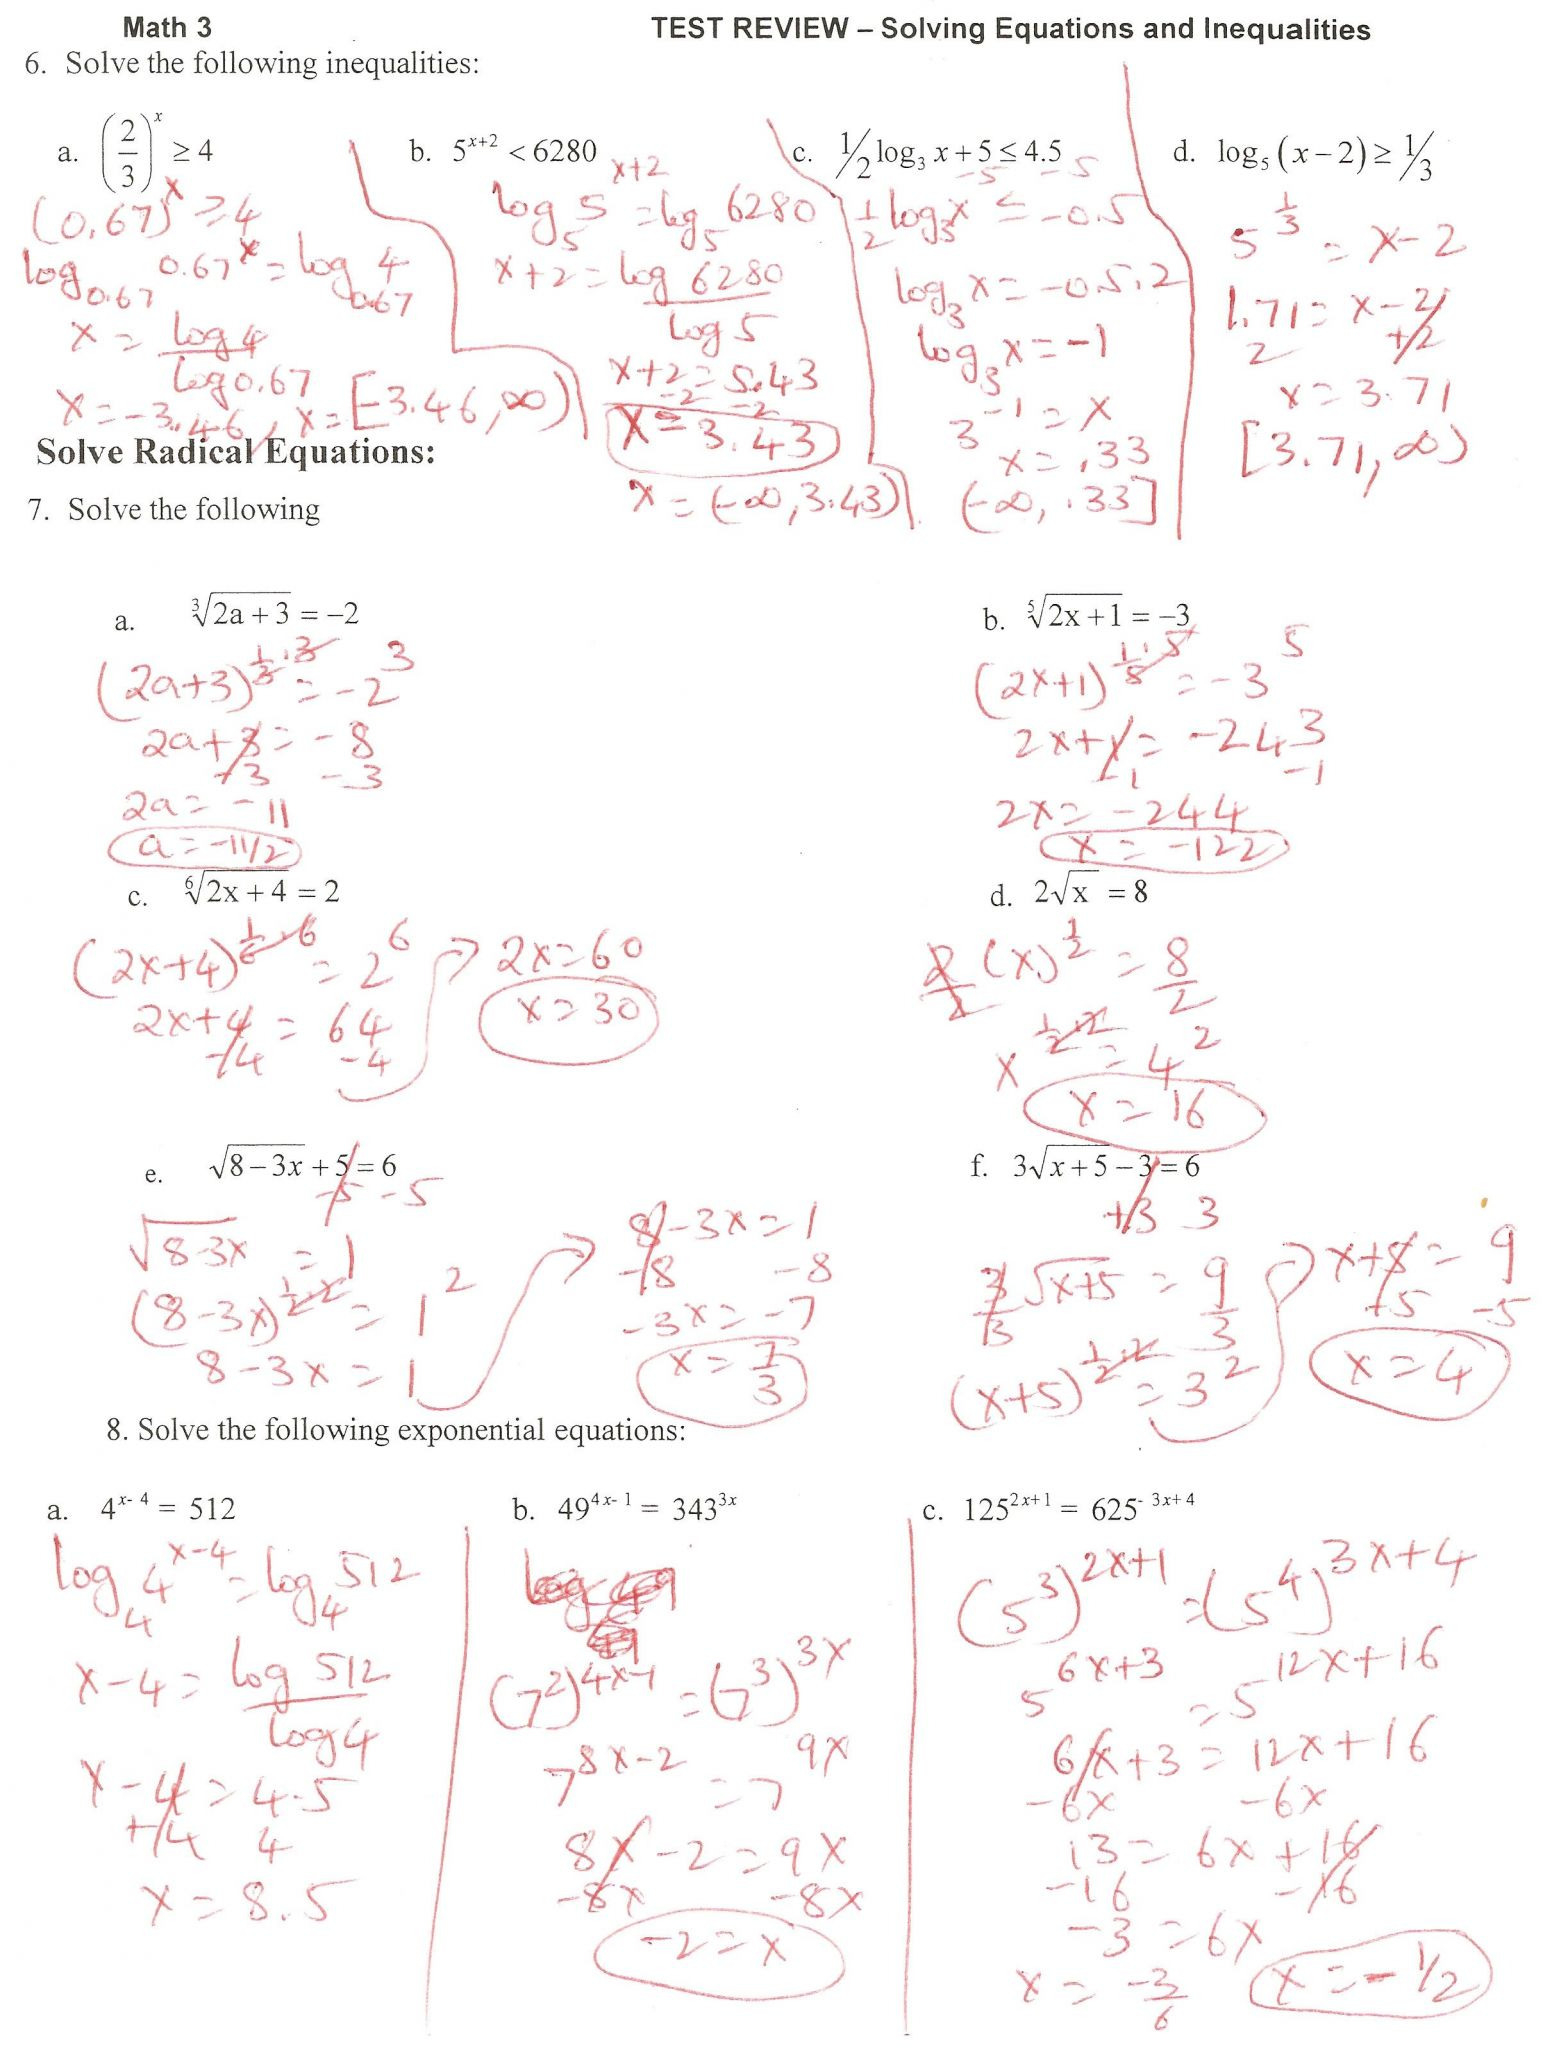 Math 3 TEST REVIEW – Solving Equations and Inequalities
6. Solve the following inequalities:
a. (2/3)^x ≥ 4
(0.67)^x ≥ 4
log_0.67 0.67^x = log_0.67 4
x = log 4 / log 0.67
x = -3.46, x = [-3.46, ∞)
b. 5^(x+2) < 6280
log_5 5^(x+2) = log_5 6280
x+2 = log 6280 / log 5
x+2 = 5.43
-2 -2
x = 3.43
x = (-∞, 3.43)
c. 1/2 log_3 x + 5 ≤ 4.5
-5 -5
1/2 log_3 x ≤ -0.5
log_3 x = -0.5.2
log_3 x = -1
3^-1 = x
x = .33
(-∞, .33]
d. log_5 (x – 2) ≥ 1/3
5^(1/3) = x-2
1.71 = x-2
2 +2
x = 3.71
[3.71, ∞)
Solve Radical Equations:
7. Solve the following
a. ∛(2a + 3) = –2
(2a+3)^(1/3·3) = -2^3
2a+3 = -8
-3 -3
2a = -11
a = -11/2
b. ⁵√(2x + 1) = –3
(2x+1)^(1/5·5) = -3^5
2x+1 = -243
-1 -1
2x = -244
x = -122
c. ⁶√(2x + 4) = 2
(2x+4)^(1/6·6) = 2^6
2x+4 = 64
-4 -4
2x = 60
x = 30
d. 2√x = 8
2/2 (x)^(1/2) = 8/2
x^(1/2·2) = 4^2
x = 16
e. √(8 – 3x) + 5 = 6
-5 -5
√(8-3x) = 1
(8-3x)^(1/2·2) = 1^2
8-3x = 1
8-3x = 1
-8 -8
-3x = -7
x = 7/3
f. 3√(x + 5) – 3 = 6
+3 3
3/3 √(x+5) = 9/3
(x+5)^(1/2·2) = 3^2
x+5 = 9
-5 -5
x = 4
8. Solve the following exponential equations:
a. 4^(x-4) = 512
log_4 4^(x-4) = log_4 512
x-4 = log 512 / log 4
x-4 = 4.5
+4 4
x = 8.5
b. 49^(4x-1) = 343^(3x)
(7^2)^(4x-1) = (7^3)^(3x)
7^(8x-2) = 7^(9x)
8x-2 = 9x
-8x -8x
-2 = x
c. 125^(2x+1) = 625^(-3x+4)
(5^3)^(2x+1) = (5^4)^(3x+4)
5^(6x+3) = 5^(12x+16)
6x+3 = 12x+16
-6x -6x
13 = 6x+16
-16 -16
-3 = 6x
x = -3/6
x = -1/2